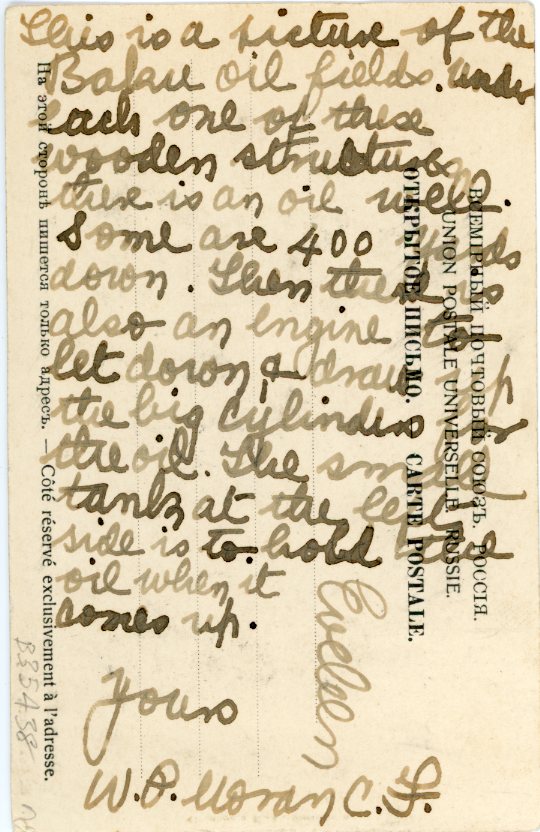 This is a picture of the
Balare oil fields. under
each one of these
wooden structures
there is an oil well.
Some are 400 yards
down. Then there is
also an engine to
let down & draw up
the big cylinders for
the oil. The small
tank at the left
side is to hold the
oil when it
comes up.
yours
W.P. Moran C.F.
На этой сторонѣ пишется только адресъ. — Côté réservé exclusivement à l'adresse.
ОТКРЫТОЕ ПИСЬМО. CARTE POSTALE.
UNION POSTALE UNIVERSELLE RUSSIE.
ВСЕМІРНЫЙ ПОЧТОВЫЙ СОЮЗЪ. РОССІЯ.
B35438